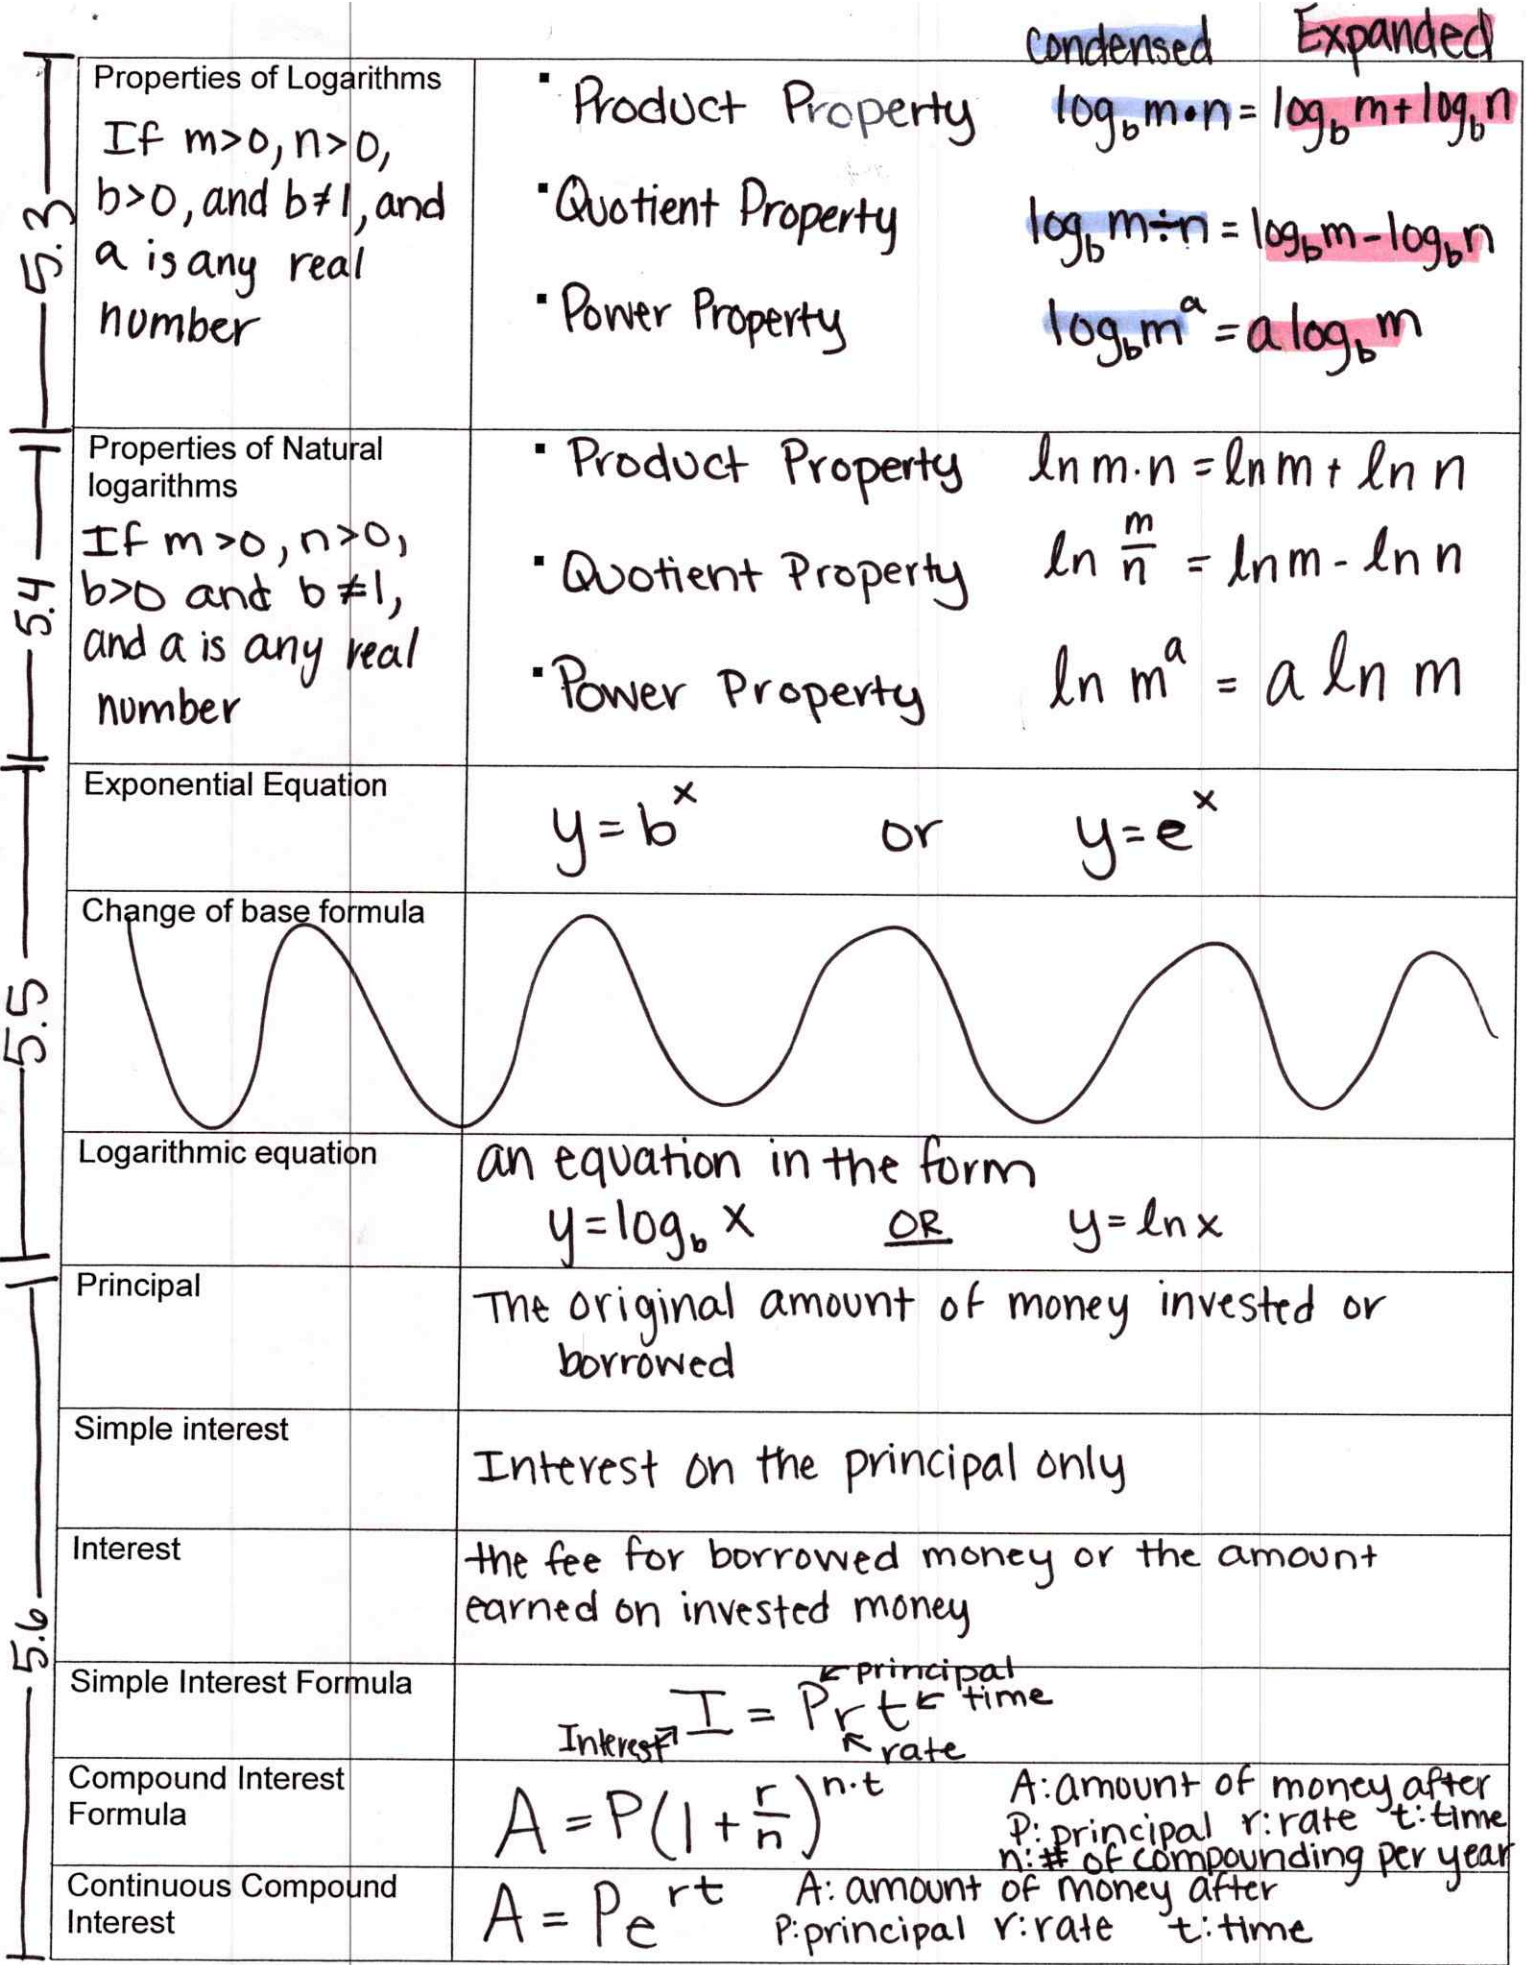 Condensed Expanded
5.3
Properties of Logarithms
If m>0, n>0,
b>0, and b≠1, and
a is any real
number
▪ Product Property log_b m•n = log_b m + log_b n
▪ Quotient Property log_b m÷n = log_b m - log_b n
▪ Power Property log_b m^a = a log_b m
5.4
Properties of Natural
logarithms
If m>0, n>0,
b>0 and b≠1,
and a is any real
number
▪ Product Property ln m·n = ln m + ln n
▪ Quotient Property ln m/n = ln m - ln n
▪ Power Property ln m^a = a ln m
5.5
Exponential Equation
y = b^x or y = e^x
Change of base formula
Logarithmic equation
an equation in the form
y = log_b x OR y = ln x
5.6
Principal
The original amount of money invested or
borrowed
Simple interest
Interest on the principal only
Interest
the fee for borrowed money or the amount
earned on invested money
Simple Interest Formula
← principal
I = Prt ← time
Interest ↗ ↖ rate
Compound Interest
Formula
A = P(1 + r/n)^n·t
A: amount of money after
P: principal r: rate t: time
n: # of compounding per year
Continuous Compound
Interest
A = Pe^rt
A: amount of money after
P: principal r: rate t: time